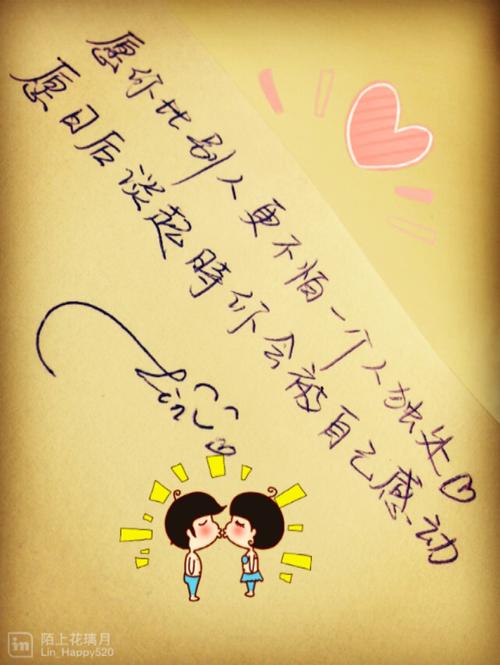 愿你比别人更不怕一个人独处
愿日后谈起時你会被自己感动
Lin
in
陌上花璃月
Lin_Happy520